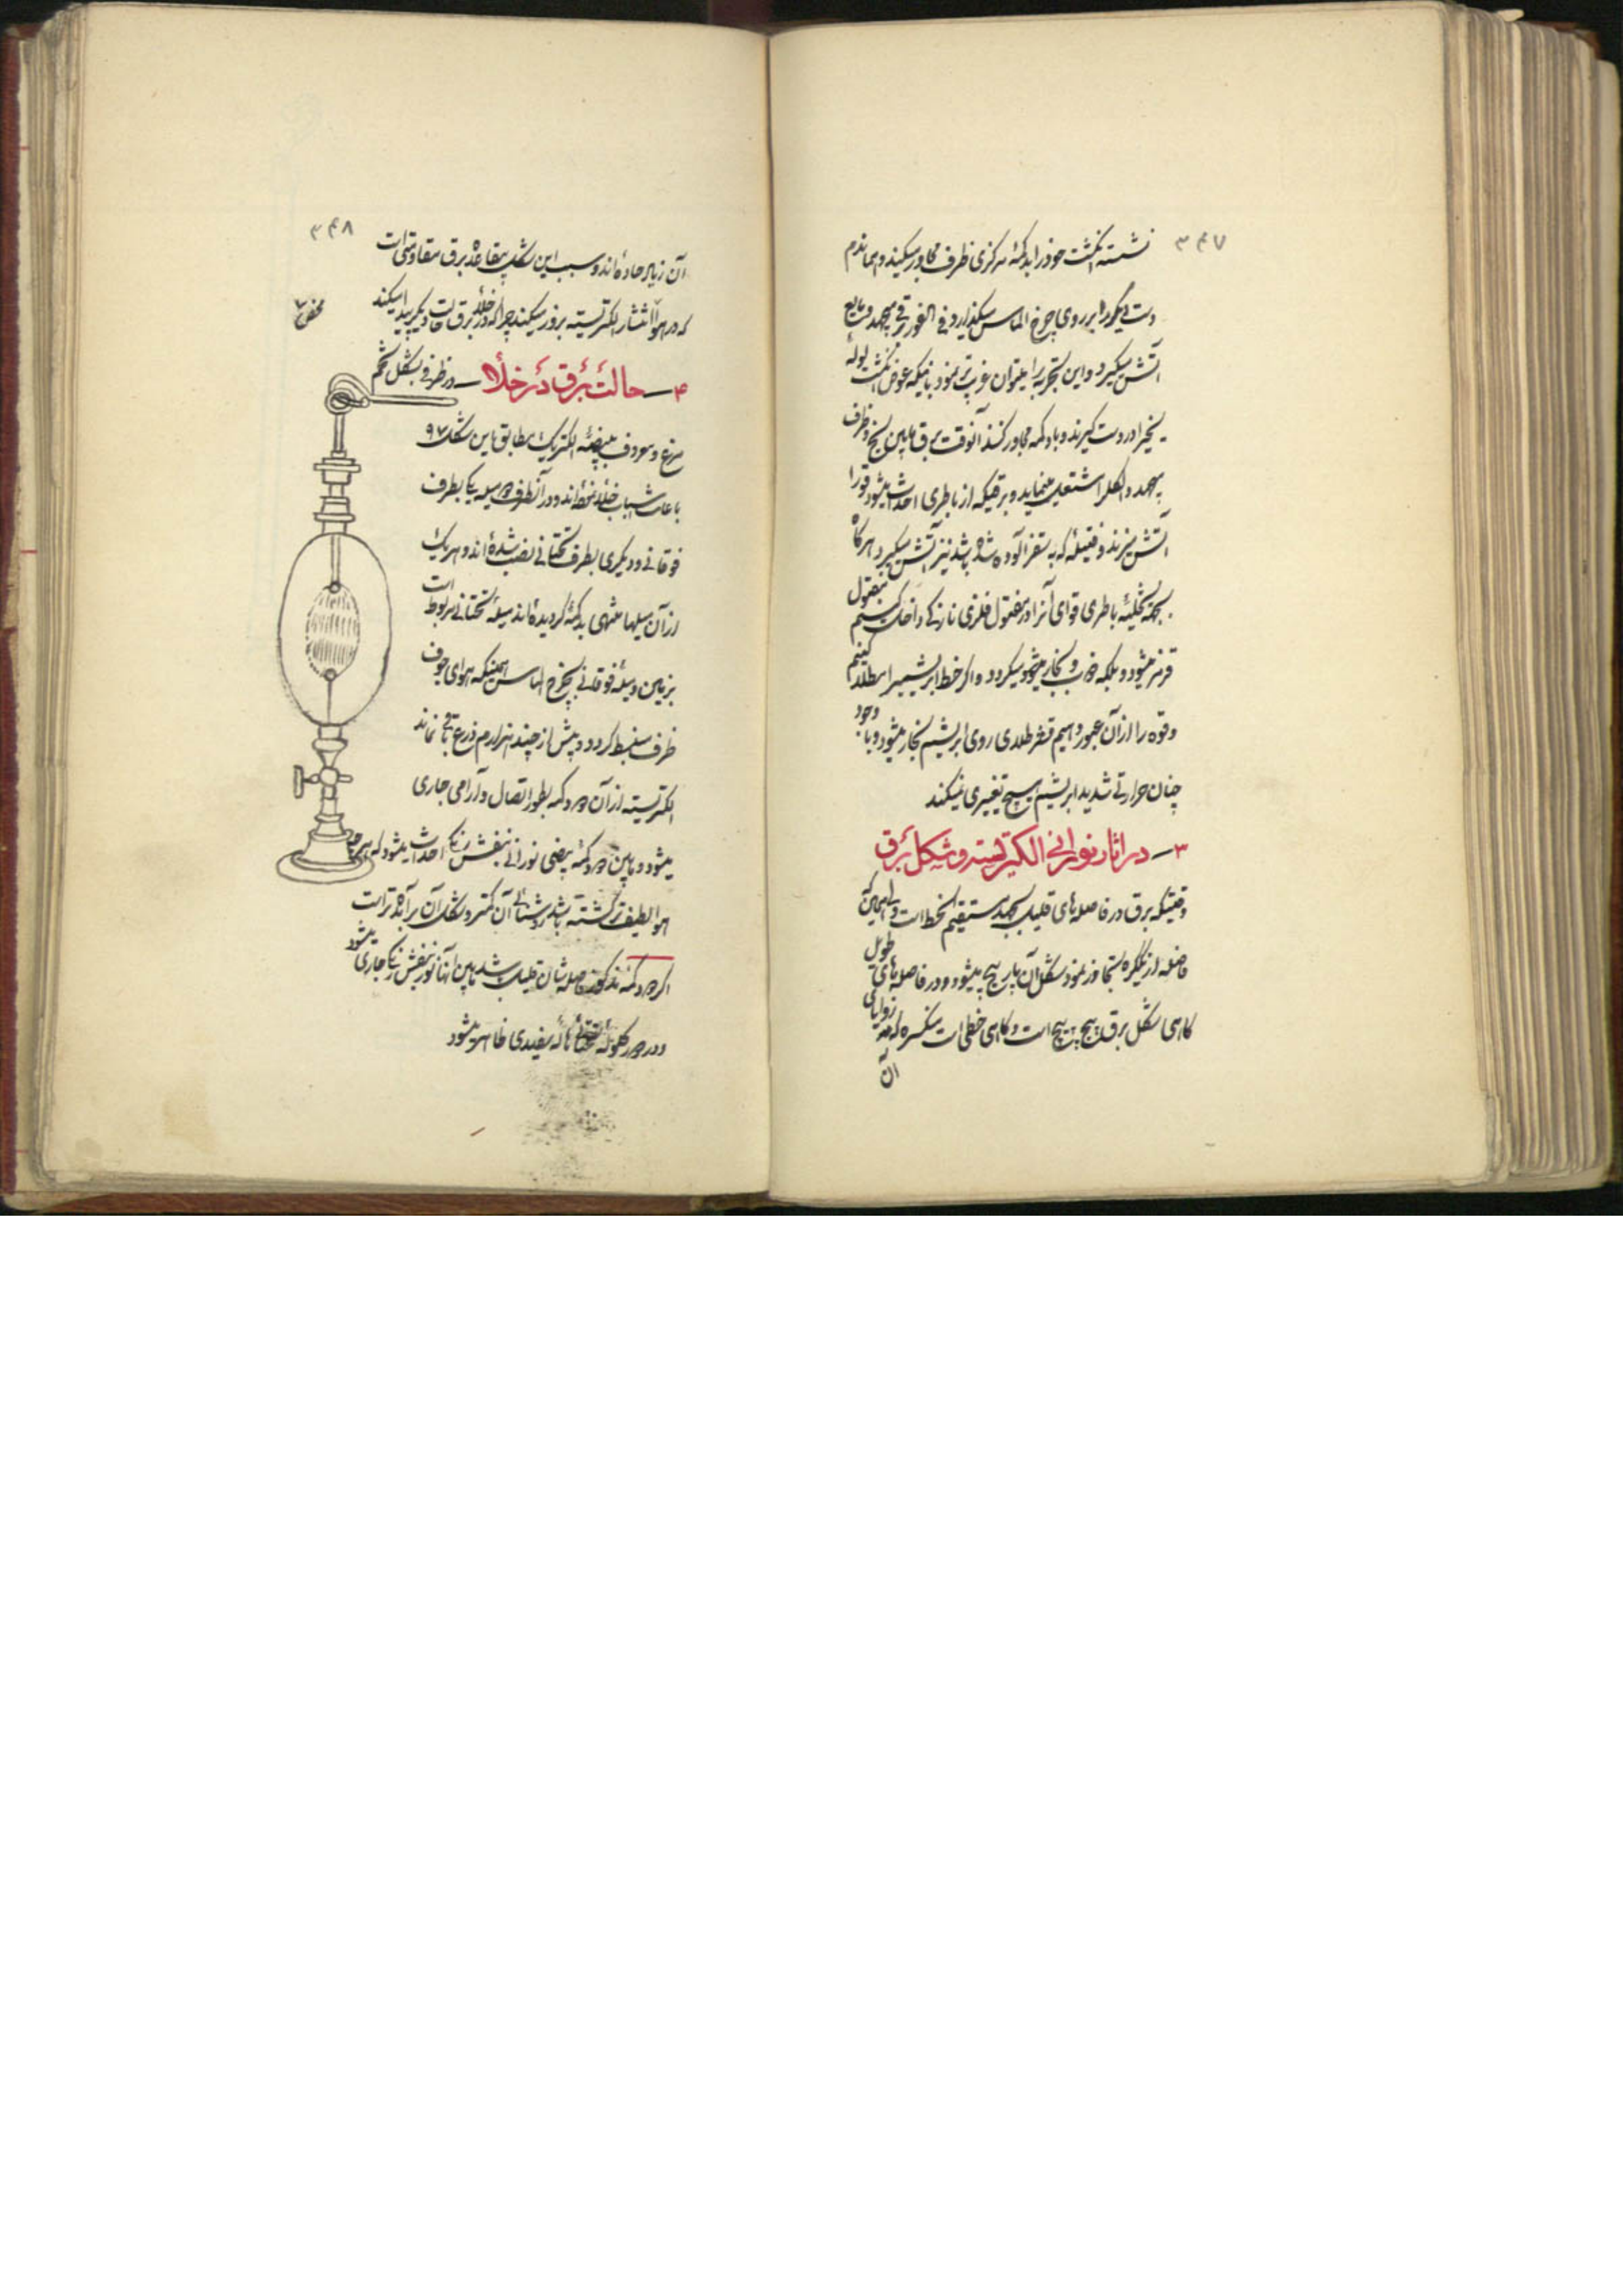 ۳۴۷
نشسته انگشت خود را بدکمهٔ مرکزی ظرف مجاور میکنند و همان دم
دست دیگر را بر روی چرخ الماس میگذارد و فی الفور برقی میجهد و مایع
آتش میگیرد و این تجربه را میتوان غریب‌تر نمود باینکه عوض انگشت لولهٔ
یخی را در دست گیرند و با دکمه مجاور کنند آنوقت برق مابین یخ و ظرف
میجهد و الکل را مشتعل مینماید و برقیکه از باطری احداث میشود قو را
آتش میزند و فتیله که به سقز آلوده شده باشد نیز آتش میگیرد هرگاه
بجهة تخلیهٔ باطری قوای آنرا در مفتول فلزی نازکی داخل کنیم مفتول
قرمز میشود و بلکه ذوب و بخار میشود میگردد و اگر خط ابریشمی را مطلا کنیم
و قوه را از آن عبور دهیم قشر طلای روی ابریشم بخار میشود و با وجود
چنان حرارتی شدید ابریشم هیچ تغییری نمیکند
۳ـ در اثار نورانی الکتریسته و شکل برق
وقتیکه برق در فاصله‌های قلیل بجهد مستقیم الخط است ولی همین که
فاصله از یکگره تجاوز نمود شکل آن مارپیچ میشود و در فاصله‌های طویل
گاهی شکل برق پیچ پیچ است و گاهی خطی است منکسره که زوایای
آن
۳۴۸
آن زیاد حاده‌اند و سبب این شکل بقاعدهٔ برق مقاومتی است
که در هوا انتشار الکتریسیته بروز میکند چرا که در خلاء برق حالت دیگر پیدا میکند
۴ـ حالت برق در خلأ ـ در ظرفی بشکل تخم
مرغ و معروف ببیضهٔ الکتریک مطابق باین شکل ۹۷
با علامت خلاء نموده‌اند و در آنظرف دو میله یکی بطرف
فوقانی و دیگری بطرف تحتانی نصب شده‌اند و هر یک
از آن میلها منتهی بدکمهٔ گردیده‌اند میلهٔ تحتانی مربوط است
بزمین و میلهٔ فوقانی بچرخ الماس همینکه هوای جوف
ظرف منبسط گردد و بیش از چند هزارم ذرع باقی نماند
الکتریسیته از آن دو دکمه بطور اتصال و آرامی جاری
میشود و مابین دو دکمه بیضی نورانی بنفش رنگ احداث میشود که هر چه
هوا لطیف‌تر گشته باشد روشنائی آن کمتر و شکل آن برآمده‌تر است
اگر دو دکمهٔ مذکور فاصله‌شان قلیل باشد مابین آنها نور بنفش رنگ جاری میشود
و در دور گلولهٔ تحتانی هالهٔ سفیدی ظاهر میشود